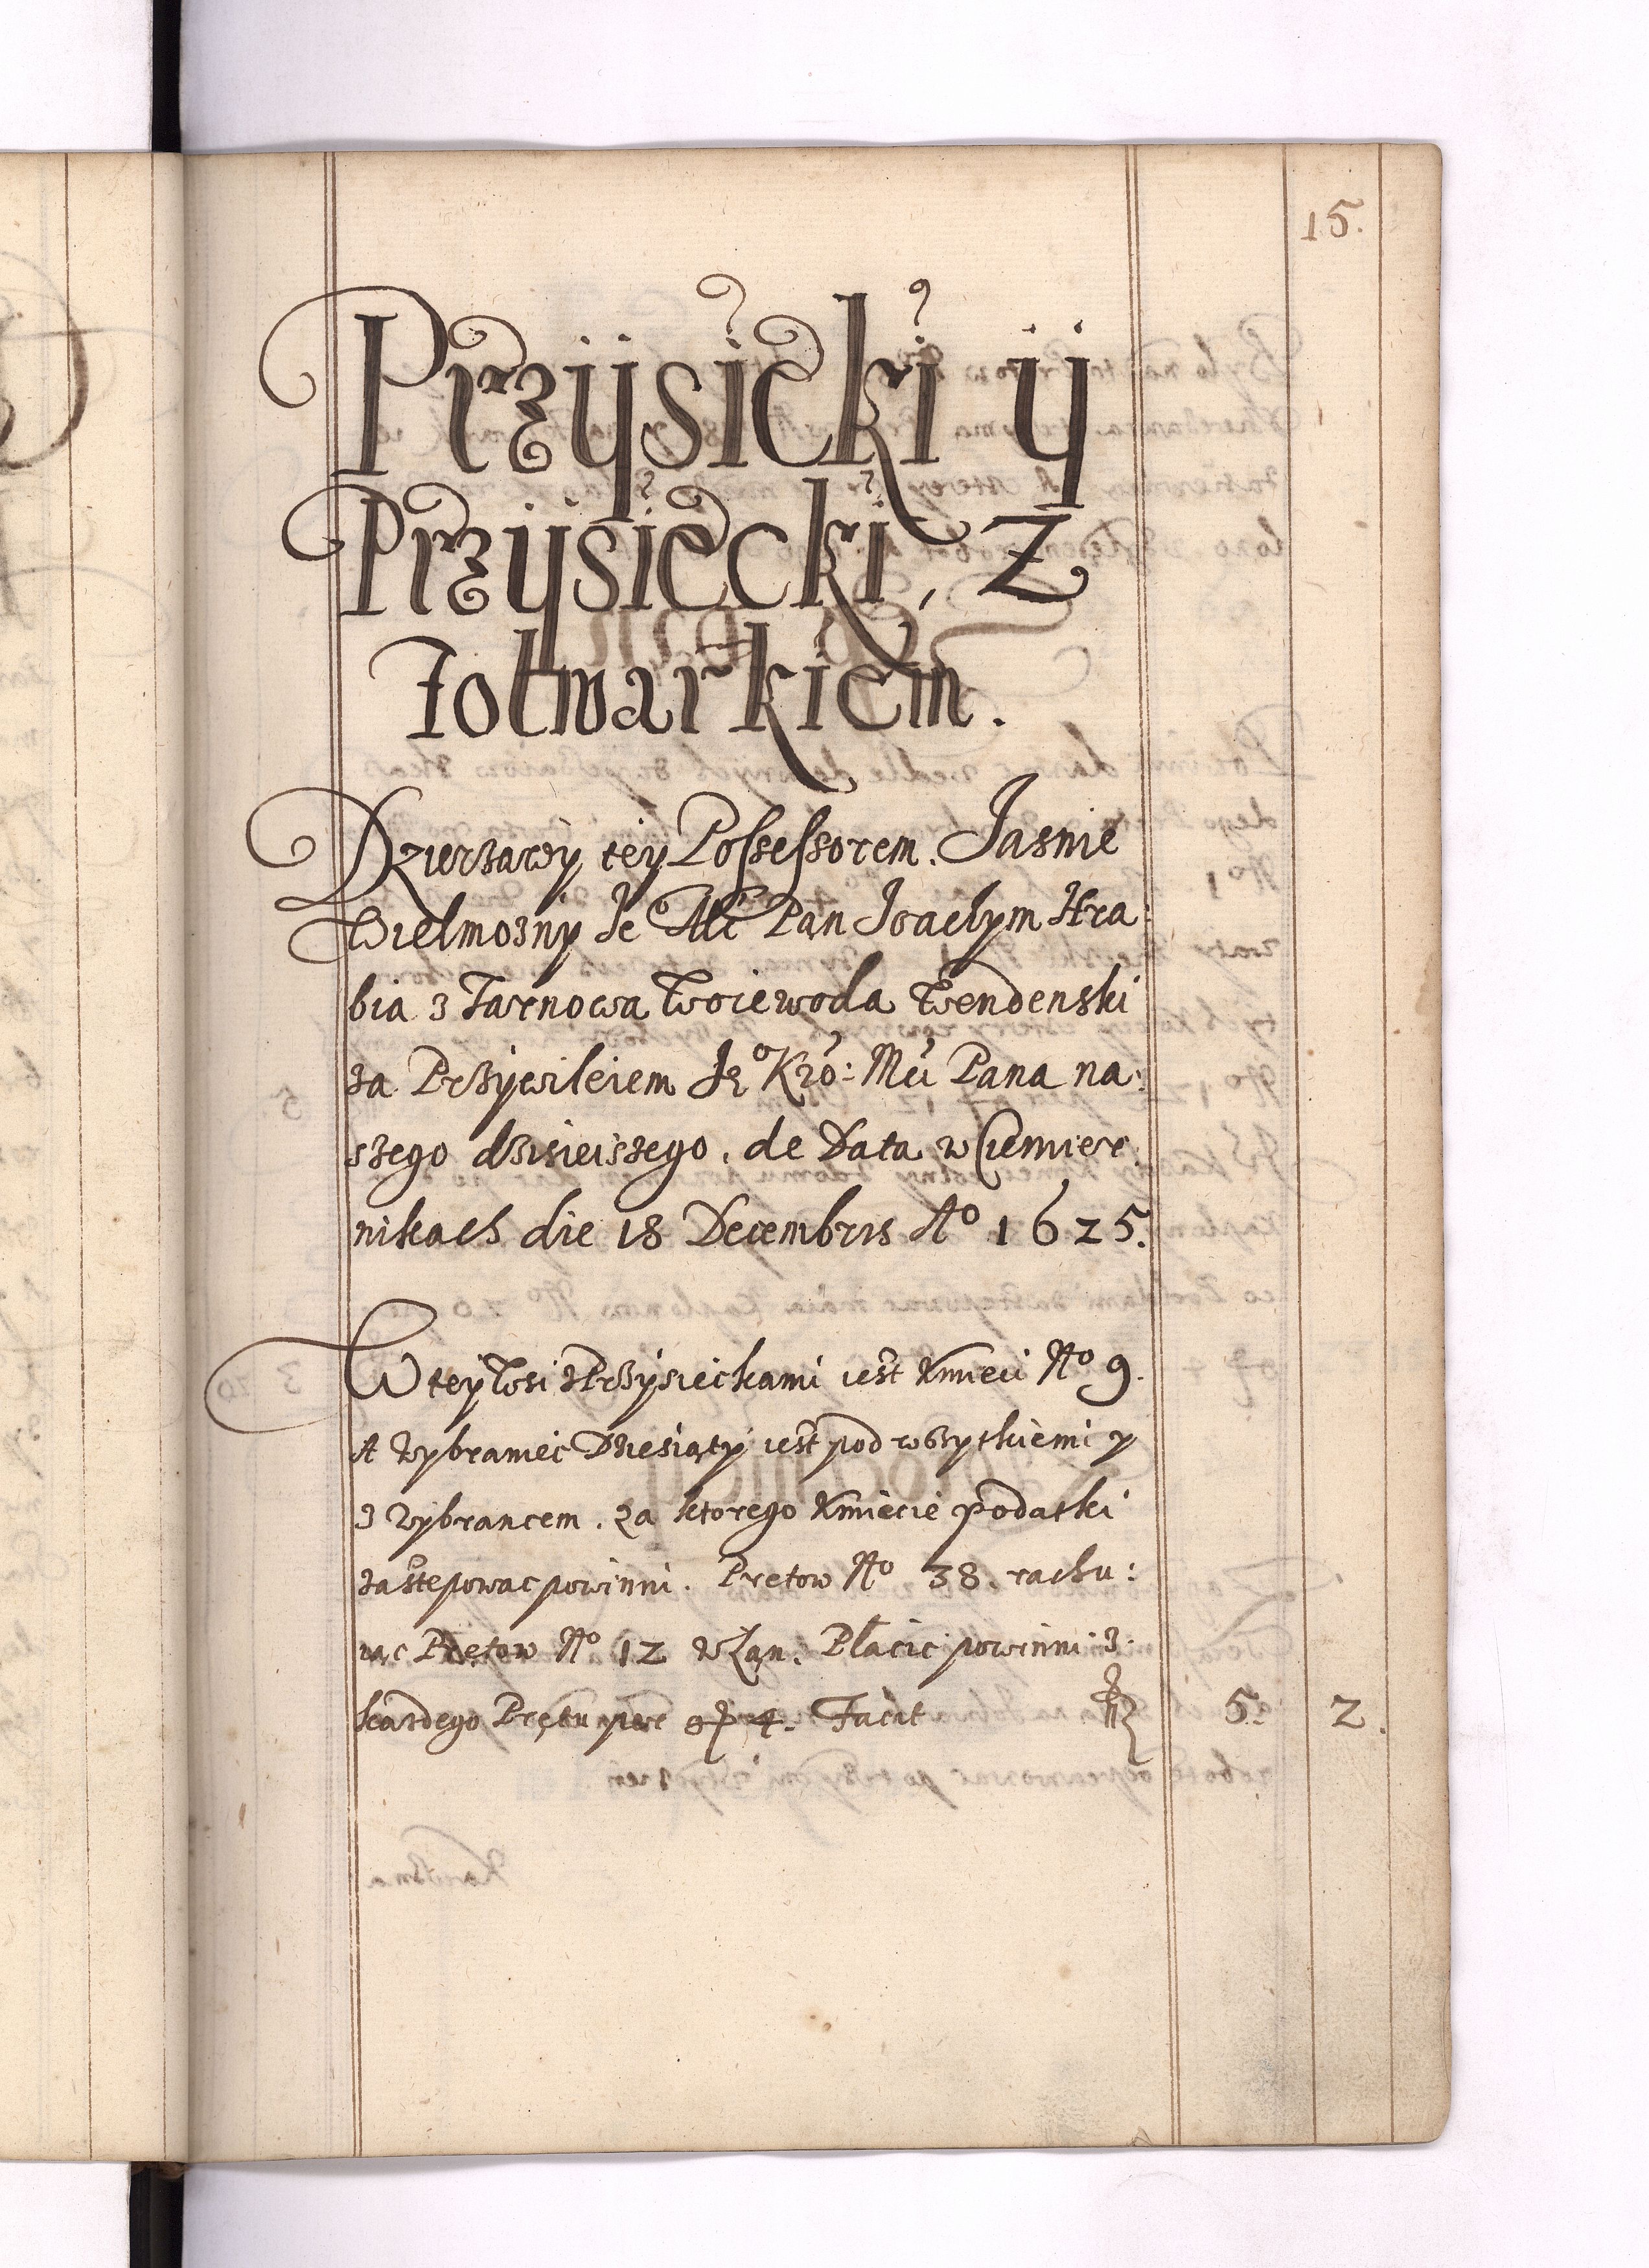 15.
Przÿsieki ÿ
Przÿsiecki, Z
Folwarkiem.
Dzierzawÿ teÿ Possessorem. Jasnie
Wielmoznÿ Je° Mć Pan Joachym Hra:
bia z Tarnowa Woiewoda Wendenski
za Przÿwileiem Je° Kró: Mći Pana na:
szego dzisieiszego. de Data w Ciemier:
nikach die 18 Decembris A° 1625.
W teÿ Wsi z Przÿsieckami iest Kmieci N° 9.
A Wÿbraniec Dziesiątÿ iest pod wszytkiemi y
z Wÿbrancem. za ktorego Kmiecie podatki
zastępowac powinni. Prętow N° 38. rachu:
iąc Prętow N° 12 w Łan. Płacic powinni z
kazdego Prętu per gr 4. Facit fl 5. 2.